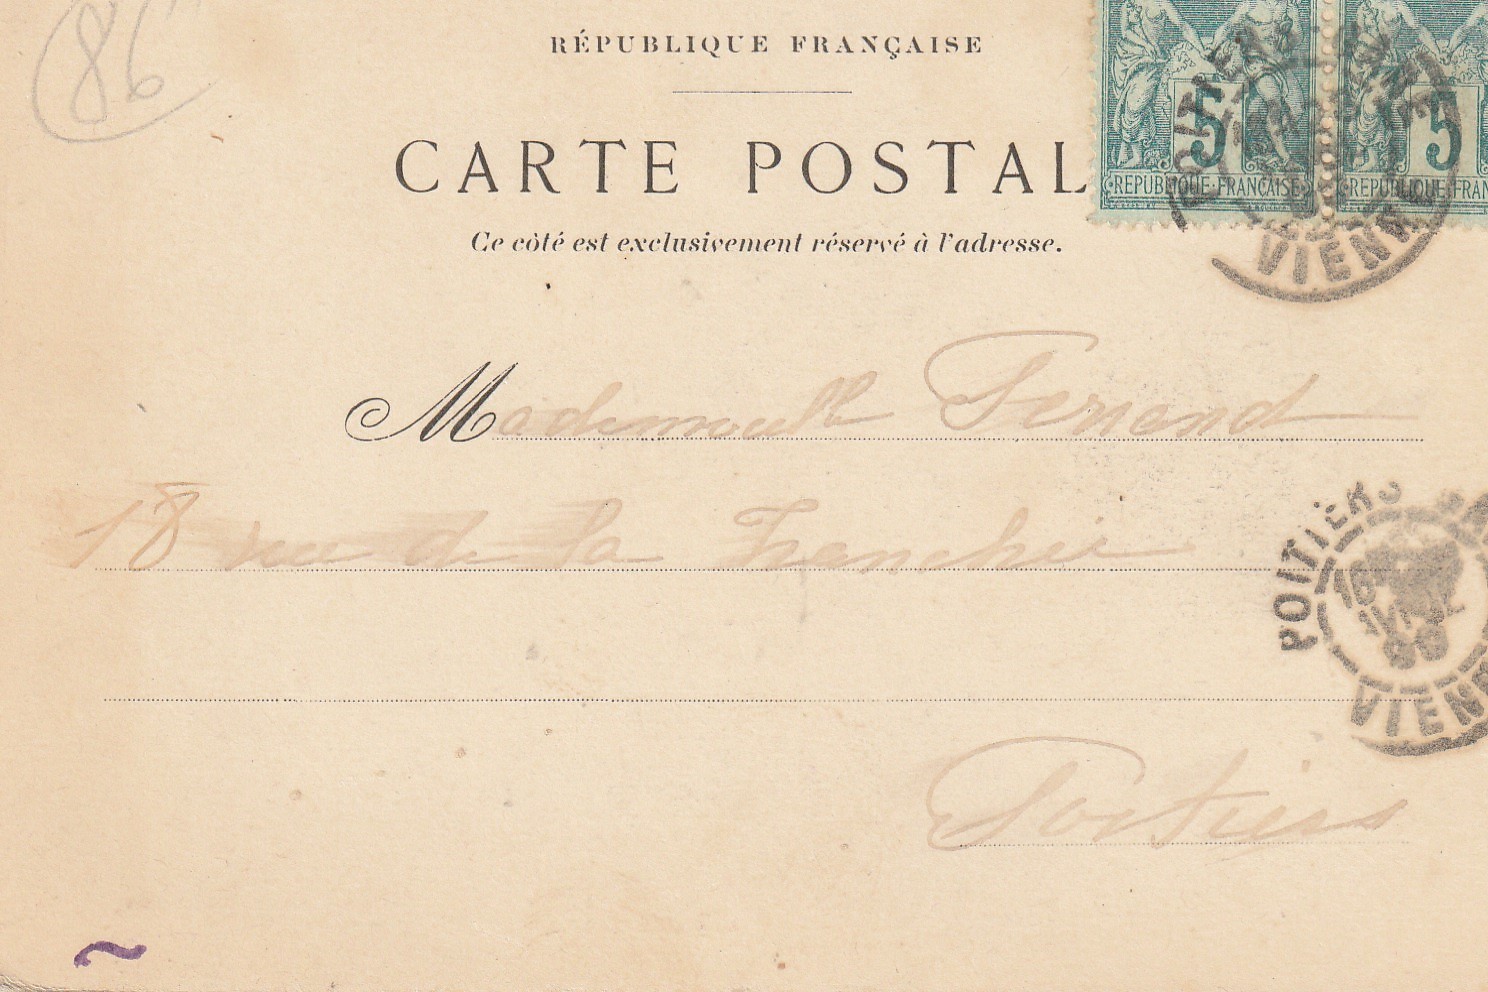 86
RÉPUBLIQUE FRANÇAISE
CARTE POSTAL
Ce côté est exclusivement réservé à l'adresse.
5
REPUBLIQUE FRANÇAISE
5
REPUBLIQUE FRAN
POITIERS
VIENNE
Mademoiselle Ferrand
18 rue de la Tranchée
POITIERS
99
VIENN
Poitiers